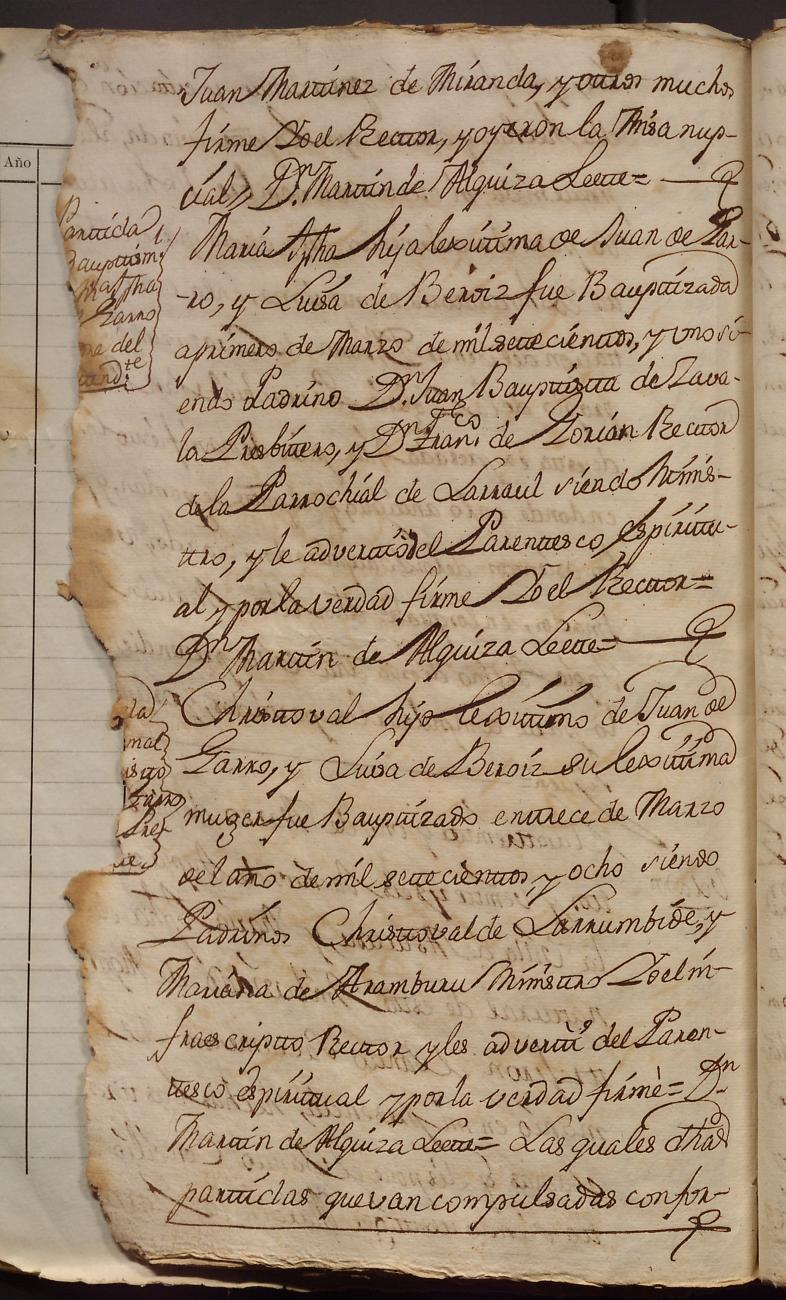 Año
Juan Martinez de Miranda, y ottros muchos
firme Yo el Recttor, y oyeron la Missa nup-
cial, Dn. Martin de Alquiza Leette=
Parttida
Bauptism
Garro
del
Maria Jpha hija lexittima de Juan de Gar-
ro, y Luisa de Beroiz fue Bauptizada
a primero de Marzo de mil settecienttos, y uno si-
endo Padrino Dn. Juan Bauptista de Zava-
la Presbitero, y Dn Franco. de Soria Recttor
de la Parrochial de Larraul siendo Minis-
ttro, y le adverttí del Parenttesco Espirittu-
al y por la verdad firme Yo el Recttor=
Dn. Marttin de Alquiza Leette=
Christtoval hijo lexittimo de Juan de
Garro, y Luisa de Beroiz su lexittima
muger fue Bauptizado en trece de Marzo
del año de mil settecienttos, y ocho siendo
Padrinos Christtoval de Larrumbide, y
Mariana de Aramburu Ministtro Yo el in-
fraescriptto Recttor y les adverttí del Paren-
ttesco espirittual y por la verdad firmè= Dn.
Marttin de Alquiza Leette= Las quales dhas
parttidas que van compulsadas confor-